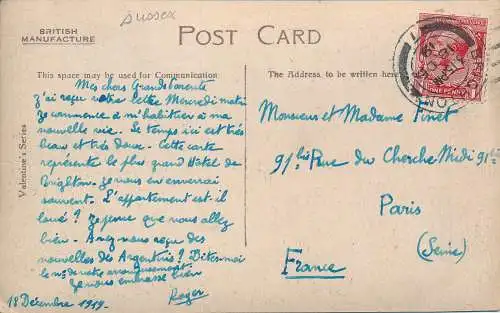 Sussex
BRITISH
MANUFACTURE
POST CARD
This space may be used for Communication
The Address, to be written here
Valentine's Series
Mes chers Grands Parents
j'ai reçu votre lettre Mercredi matin
Je commence à m'habituer à ma
nouvelle vie. Le temps ici est très
beau et très doux. Cette carte
représente le plus grand Hôtel de
Brighton. Je vous en enverrai
souvent. L'appartement est-il
loué? Je pense que vous allez
bien. Avez vous reçu des
nouvelles des Argentins? Dites moi
le no de votre arrondissement
Je vous embrasse bien
18 Décembre 1919. Roger
ONE PENNY
Monsieur et Madame Pinet
91bis Rue du Cherche Midi 91bis
Paris
(Seine)
France